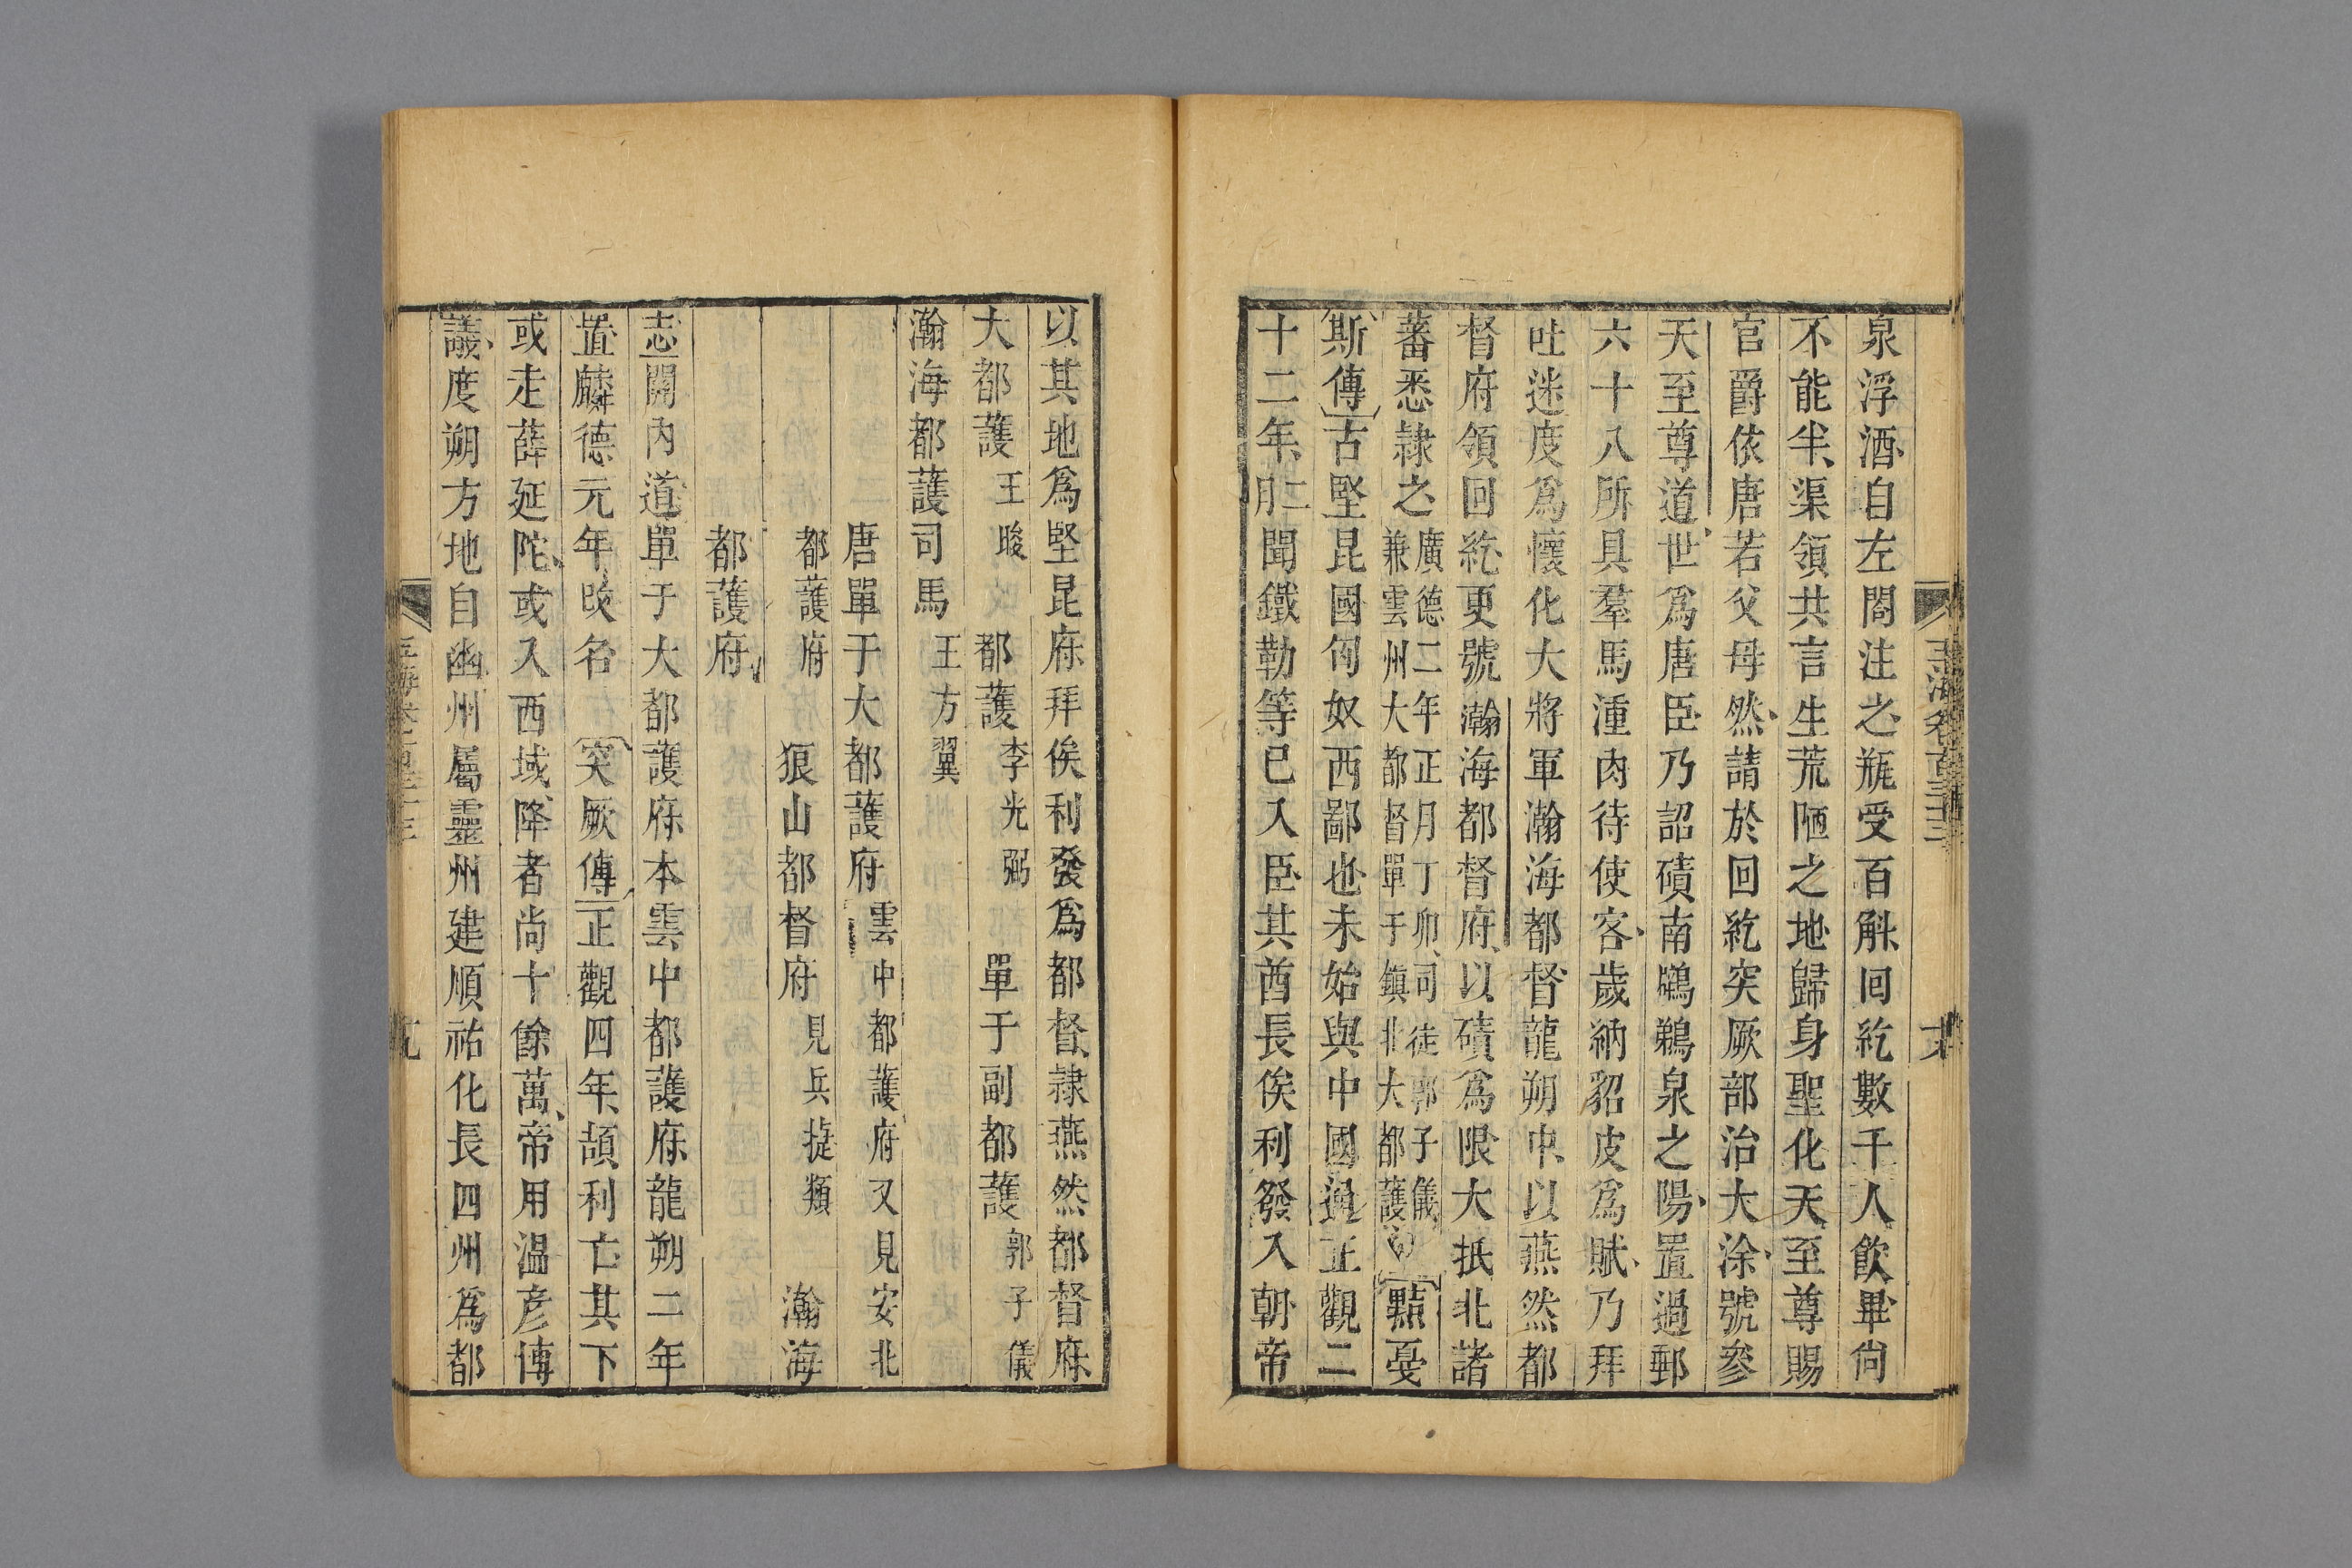 玉海卷一百三十三
泉浮酒自左閤注之瓶受百斛囘紇數千人飲畢尙
不能半渠領共言生荒陋之地歸身聖化天至尊賜
官爵依唐若父母然請於回紇突厥部治大涂號參
天至尊道世爲唐臣乃詔磧南鸊鵜泉之陽置過郵
六十八所具羣馬湩肉待使客歲納貂皮爲賦乃拜
吐迷度爲懷化大將軍瀚海都督龍朔中以燕然都
督府領回紇更號瀚海都督府以磧爲限大抵北諸
蕃悉隷之廣德二年正月丁卯司徒郭子儀兼雲州大都督單于鎮北大都護
黠戛
斯傳古堅昆國匈奴西鄙也未始與中國通正觀二
十二年二月聞鐵勒等已入臣其酋長俟利發入朝帝
以其地爲堅昆府拜俟利發爲都督隷燕然都督府
大都護王晙 都護李光弼 單于副都護郭子儀
瀚海都護司馬王方翼
唐單于大都護府 雲中都護府又見安北
都護府 狼山都督府見兵捷類 瀚海
都護府
志關内道單于大都護府本雲中都護府龍朔二年
置麟德元年改名 突厥傳正觀四年頡利亡其下
或走薛延陀或入西域降者尚十餘萬帝用温彦博
議度朔方地自幽州屬靈州建順祐化長四州爲都